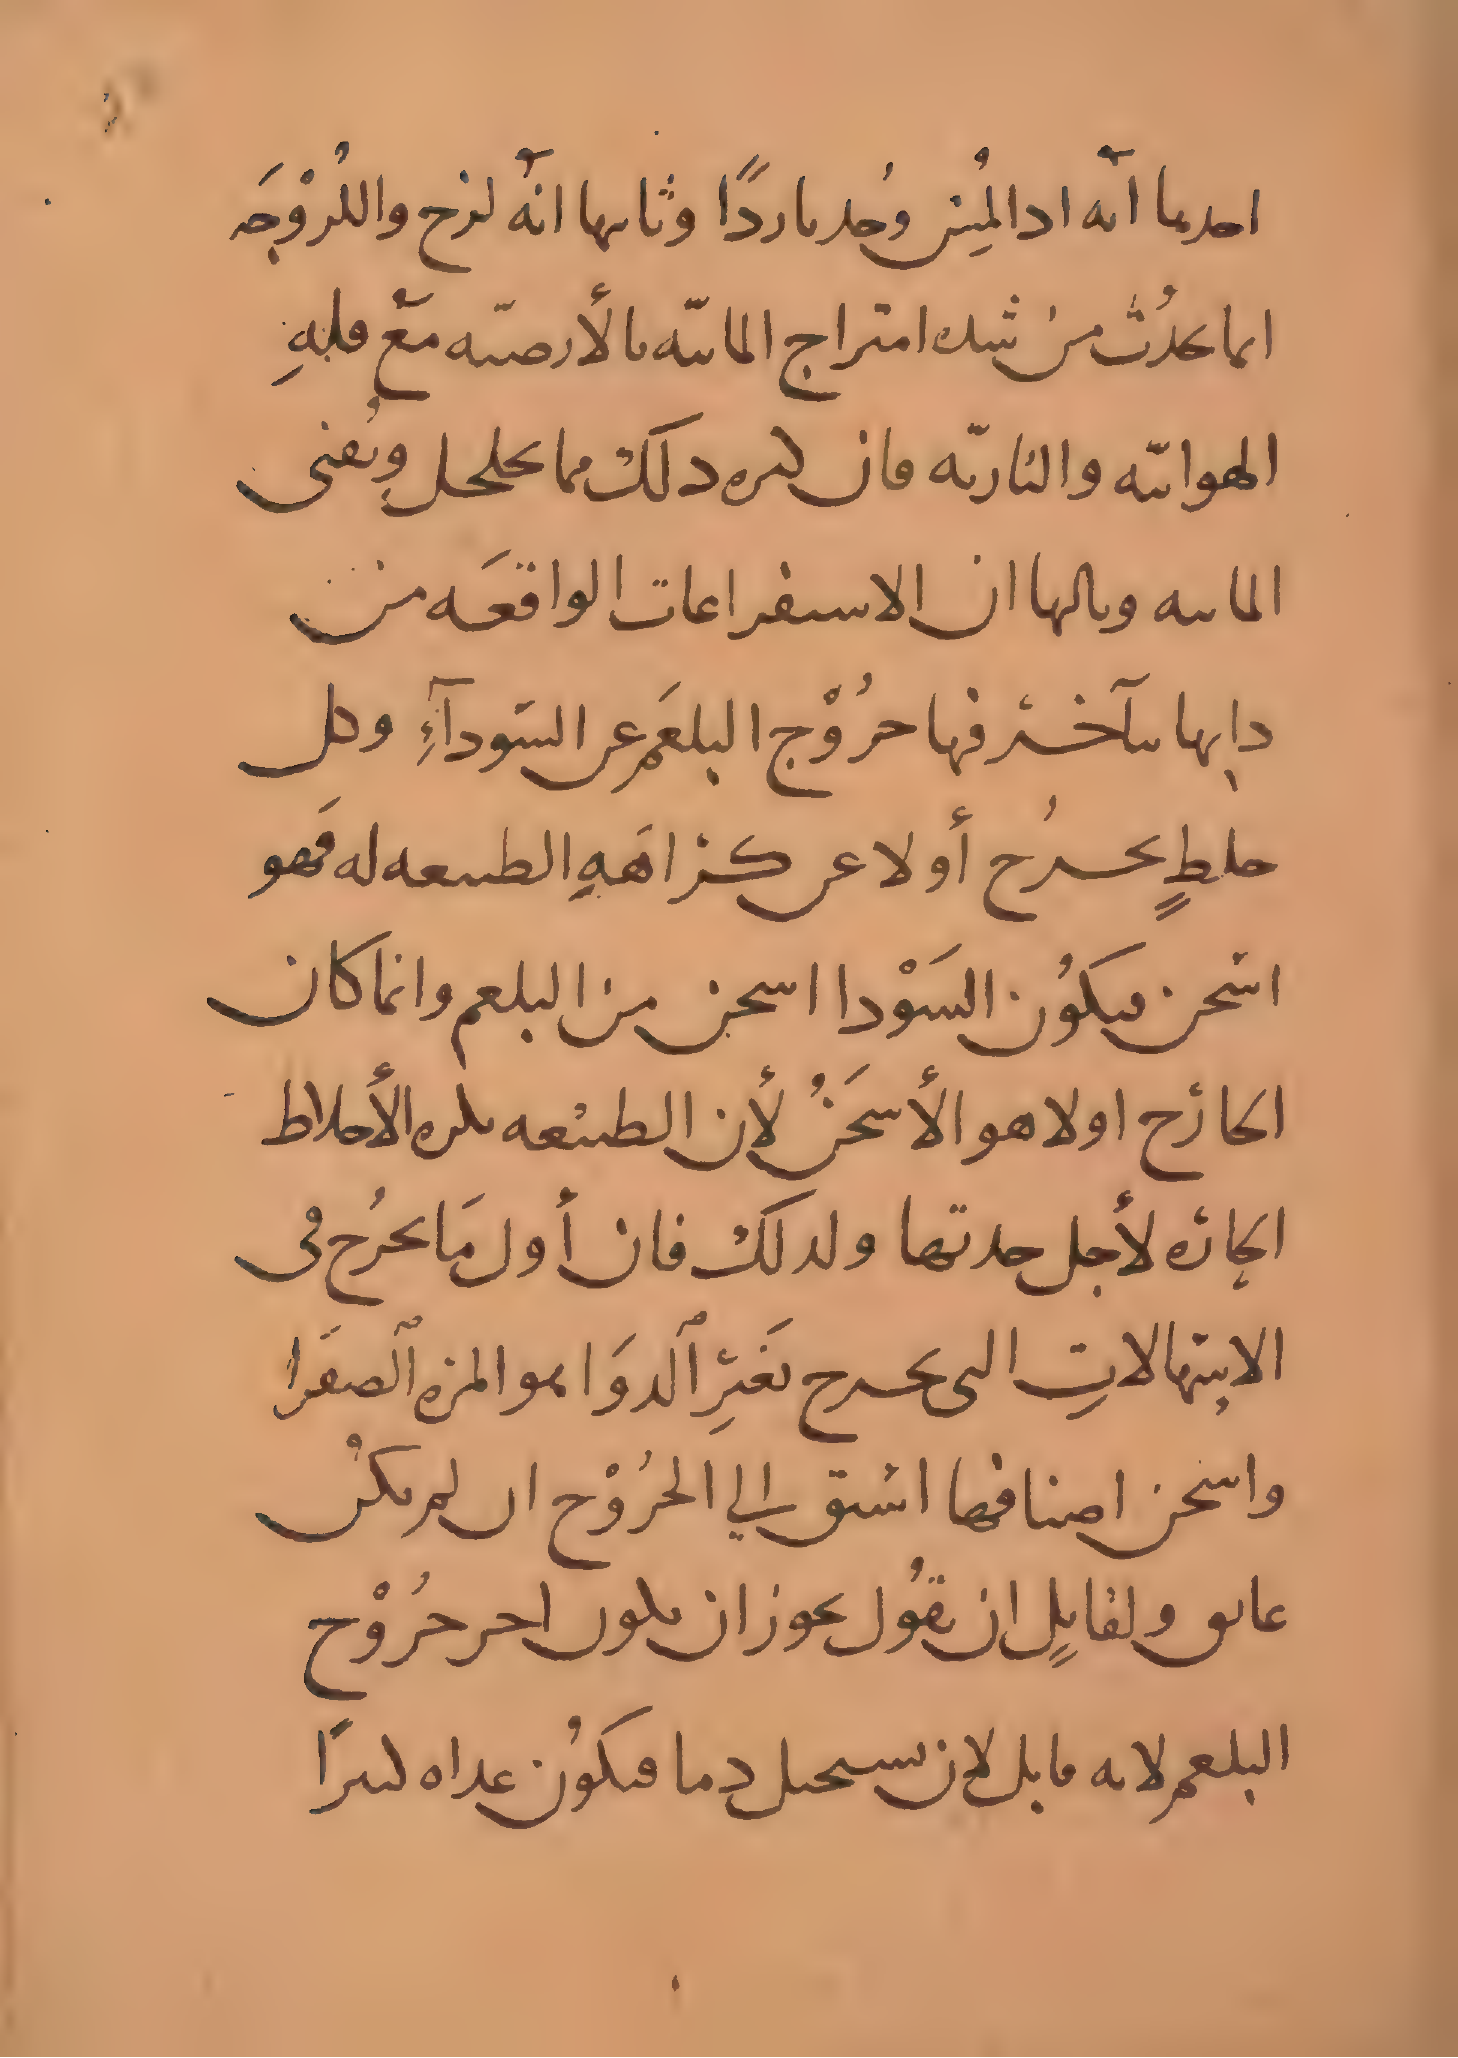 احدها أنه ادا لُمِسَ وُجد باردًا وثانيها انّه لزج واللُزوْجَه
انما يحدُث من شده امتزاج المائيّه بالأرضيّه مَعَ قلهِ
الهوائيّه والناريّه فان كثره دلك مما يحلحل ويُفني
المائيه وثالثها ان الاستفراغات الواقعَه من
داتها يتآخر فيها خرُوْج البلغَم عن السّودآءِ وكل
خلطٍ يخرُج أولا عن كراهَهِ الطبيعه له فَهو
اسْخن فيكوُن السَوْدا اسخن من البلغم وانما كان
الخارج اولا هو الأسخَنُ لأن الطبيعه تكره الأخلاط
الحارّه لأجل حدتها ولدلك فان أول مَا يخرُج في
الابتهالاتِ التي تحدث بغَيْرِ الدوَا هو المره الصفَرا
واسخن اصنافها اسْبق الي الخرُوْج ان لم يكنْ
عائق ولقايلٍ ان يقوُل يجوز ان يكون اخر خرُوْج
البلغم لانه قابل لان يستحيل دما فيكوُن غداه كثيرًا